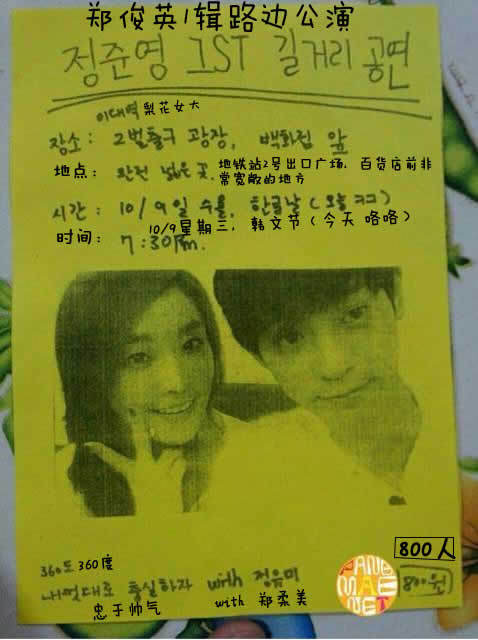 郑俊英1辑路边公演
정준영 1ST 길거리 공연
이대역 梨花女大
장소: 2번출구 광장, 백화점 앞
地点: 완전 넓은 곳. 地铁站2号出口广场. 百货店前非常宽敞的地方
시간: 10/9일 수욜, 한글날 (오늘 ㅋㅋ)
时间: 10/9星期三, 韩文节 (今天 咯咯)
7:30Pm.
360도 360度
내멋대로 충실하자 with 정유미
忠于帅气 with 郑柔美
800人
800원
PANG MAE NET